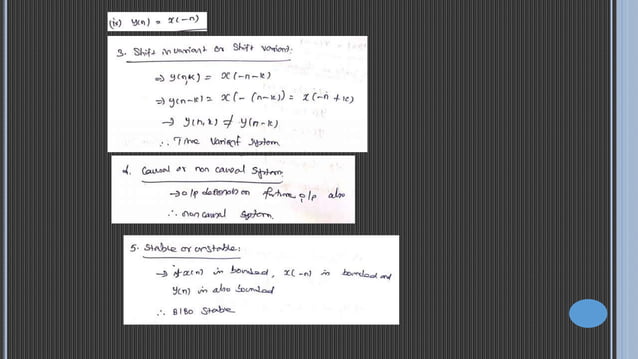 (iv) y(n) = x(-n)
3. Shift invariant or Shift variant:
⇒ y(n,k) = x(-n-k)
⇒ y(n-k) = x(-(n-k)) = x(-n+k)
→ y(n,k) ≠ y(n-k)
∴ Time Variant System
4. Causal or non causal System:
→ o/p depends on future i/p also
∴ non causal System.
5. Stable or unstable:
→ if x(n) is bounded, x(-n) is bounded and
y(n) is also bounded
∴ BIBO Stable